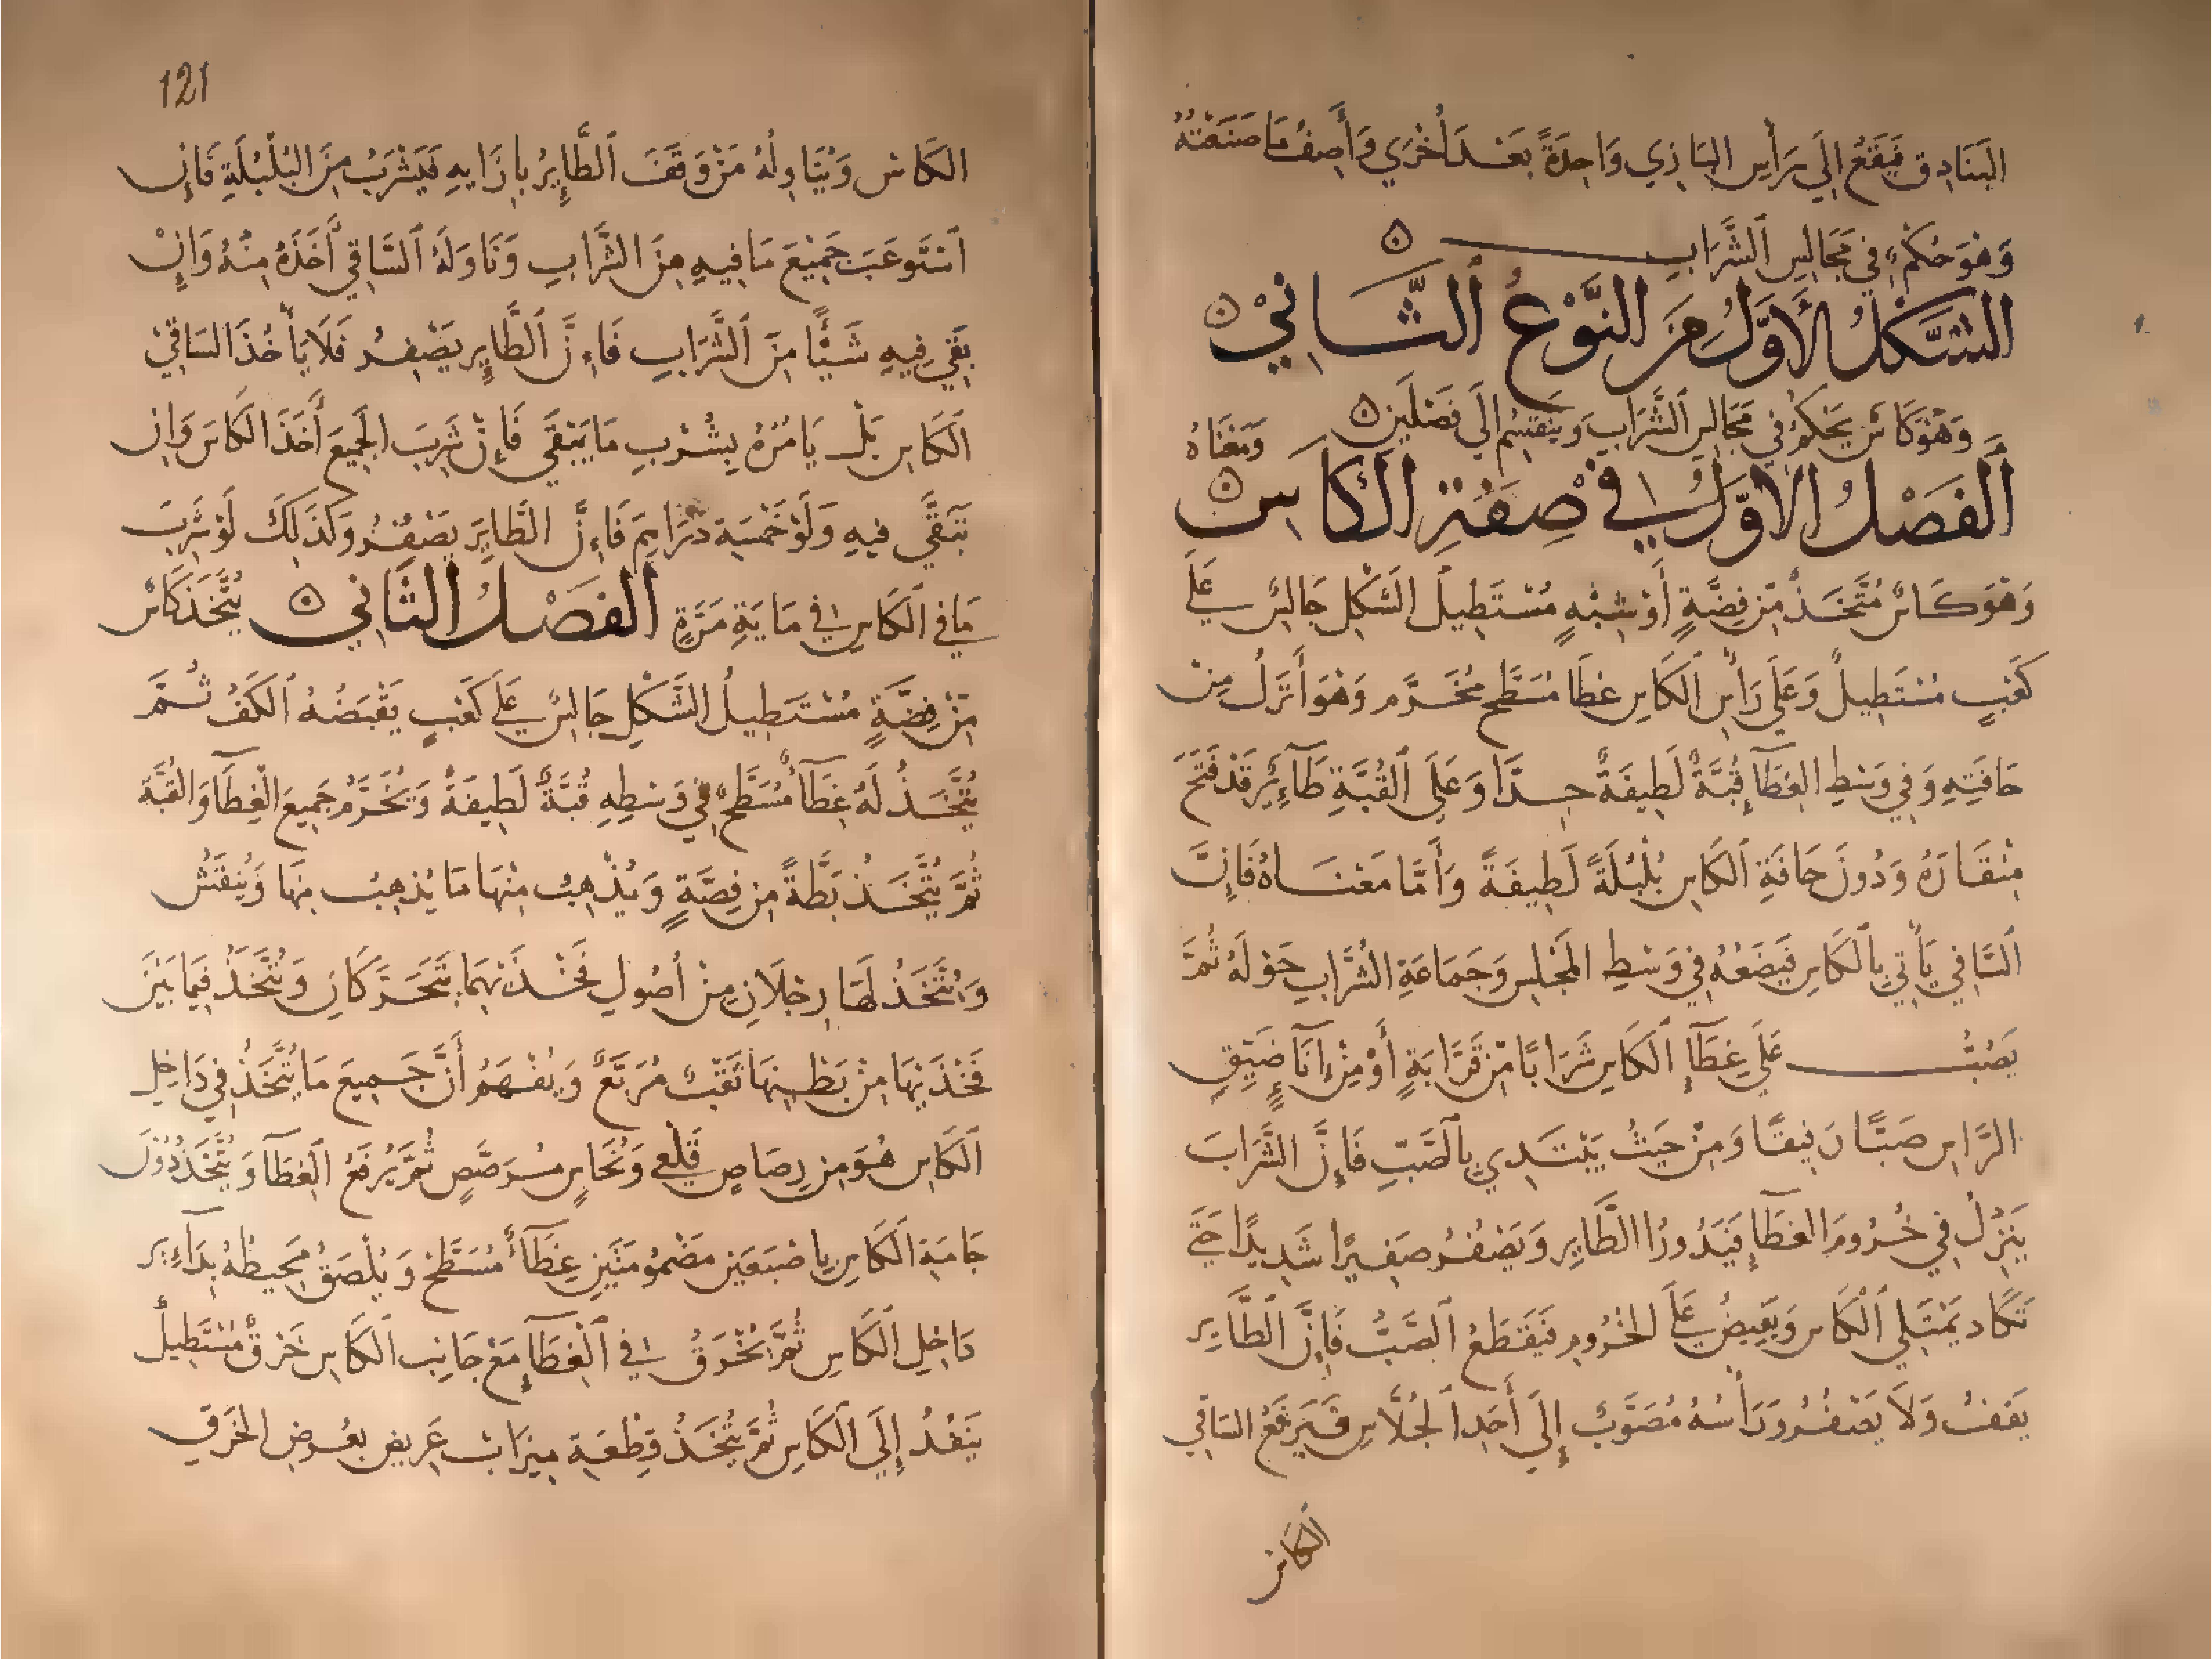 البَنَادِق فَيَقَعُ إلَي رَأسِ البَازِي وَاحِدَةً بَعْدَ أُخْرَي وَأَصِفُ مَا صَنَعْتُهُ
وَهُوَ حُكْمٌ فِي مَجَالِسِ الشَّرَابِ
الشَّكْلُ الأَوَّلُ مِنَ النَّوْعِ الثَّانِيْ
وَهُوَ كَاسٌ يَحْكُمُ فِي مَجَالِسِ الشَّرَابِ وَيَنْقَسِمُ إلَي فَصْلَينِ وَمَعْنَاهُ
اَلفَصْلُ الأَوَّلُ فِي صِفَةِ الكَاسِ
وَهُوَ كَاسٌ مُتَّخَذٌ مِنْ فِضَّةٍ أَوْ شِبْهٍ مُسْتَطِيلُ الشَّكْلِ جَالِسٌ عَلَي
كَعْبٍ مُسْتَطِيلٌ وَعَلَي رَأسِ الكَاسِ غطَا مُسَطَّح مُخَرَّم وَهُوَ أَنْزَلُ مِنْ
حَافَتِهِ وَفِي وَسْطِ الغِطَآءِ قُبَّةٌ لَطِيفَةٌ جِدَّا وَعَلَي القُبَّةِ طَآئِرٌ قَدْ فَتَحَ
مِنْقَارَهُ وَدُونَ حَافَةِ الكَاسِ بُلْبُلَةً لَطِيفَةً وَأَمَّا مَعْنَاهُ فَإِنَّ
السَّاقِي يَأتِي بِالكَاسِ فَيَضَعُهُ فِي وَسْطِ المَجْلِسِ وَجَمَاعَةِ الشُّرَّابِ حَوْلَهُ ثُمَّ
يَصُبُّ عَلَي غِطَآءِ الكَاسِ شَرَابًا مِنْ قَرَّابَةٍ أَوْ مِنْ إنَآءٍ ضَيِّقِ
الرَّاسِ صَبًّا رَفِيقًا وَمِنْ حَيثُ يَبْتَدِي بِالصَّبِّ فَإِنَّ الشَّرَابَ
يَنْزِلُ فِي خُرُومِ الغطَآءِ فَيَدُورُ الطَّايِر وَيَصْفُرُ صَفِيرًا شَدِيدًا حَتَّي
تَكَاد يَمْتَلِي الكَاس وَيَفِيضُ عَلَي الخُرُومِ فَيَقْطَعُ الصَّبُّ فَإِنَّ الطَّايِر
يَقِفُ وَلاَ يَصْفُرُ وَرَأسُهُ مُصَوَّبٌ إلَي أَحَدِ الجُلاَّسِ فَيَرْفَعُ السَاقِي
الكَاسَ
121
الكَاسَ وَيُنَاوِلُهُ مَنْ وَقَفَ الطَّايِرُ بِازَايِهِ فَيَشْرَبُ مِنَ البُلْبُلَةِ فَإِنِ
اسْتَوعَبَ جَمِيْعَ مَا فِيهِ مِنَ الشَّرَابِ وَنَاوَلَهُ السَّاقِي أَخَذَهُ مِنْهُ وَإِنْ
بَقِيَ فِيهِ شَيْئًا مِنَ الشَّرَابِ فَإِنَّ الطَّايِر يَصْفِرُ فَلَا يَأخُذُ السَاقِيْ
الكَاس بَلْ يَامُرُهُ بِشُرْبِ مَا يَبْقَي فَإِنْ شَرِبَ الجَمِيعَ أَخَذَ الكَاسَ وَان
تَبَقَّي فِيهِ وَلَوْ خَمْسَة دَرَاهِمَ فَإِنَّ الطَّايِرَ يَصْفُرُ وَكَذَلِكَ لَوْ شَرِبَ
مَا فِي الكَاسِ فِي مَايَةِ مَرَّةٍ الفَصْلُ الثَانِي يُتَّخَذ كَاسٌ
مِنْ فِضَّةٍ مُسْتَطِيلُ الشَّكْلِ جَالِسٌ عَلَي كَعْبٍ يَقْبَضُهُ الكَفُّ ثُمَّ
يُتَّخَذُ لَهُ غِطَآءٌ مُسَطَّحٌ فِي وَسطِهِ قُبَّةٌ لَطِيفَةٌ وَيُخَرَّمُ جَمِيعَ الغِطَآ وَالقُبَّة
ثُمَّ يُتَّخَذ بَطَّةً مِن فِضَّةٍ وَيُذْهِبُ مِنْهَا مَا يُذهِبُ مِنهَا وَيُنقَشُ
وَيُتَّخَذُ لَهَا رِجْلَانِ مِنْ أُصُولِ فَخْذَيْهِمَا يَتَحَرَّكَانِ وَيُتَّخَذُ فِيمَا بَيْنَ
فَخْذَيْهَا مِنْ بَطْنِهَا ثَقْبٌ مُرَبَّعٌ وَيُفْهَمُ أَنَّ جَمِيعَ مَا يُتَّخَذُ فِي دَاخِلِ
الكَاسِ هُوَ مِن رِصَاصٍ قَلْعِي وَنُحَاسٍ مُرَصَّصٍ ثُمَّ يُرفَعُ الغِطَآ وَيُتَّخَذُ دُونَ
حَافَةِ الكَاسِ بِاصْبَعَيْن مَضْمُومَتَيْنِ غِطَآءٌ مُسَطَّحٌ وَيُلْصَقُ مُحِيطُهُ بِدَآئِر
دَاخِلِ الكَاسِ ثُمَّ يُخْرَقُ فِي الغِطَآءِ مَعْ جَانِبِ الكَاسِ خَرْقٌ مُسْتَطِيلٌ
يَنْفُذُ إلَي الكَاسِ ثُمَّ يُتَّخَذُ قِطْعَة مِيزَابٍ عَرِيضٍ بِعُرضِ الخَرقِ